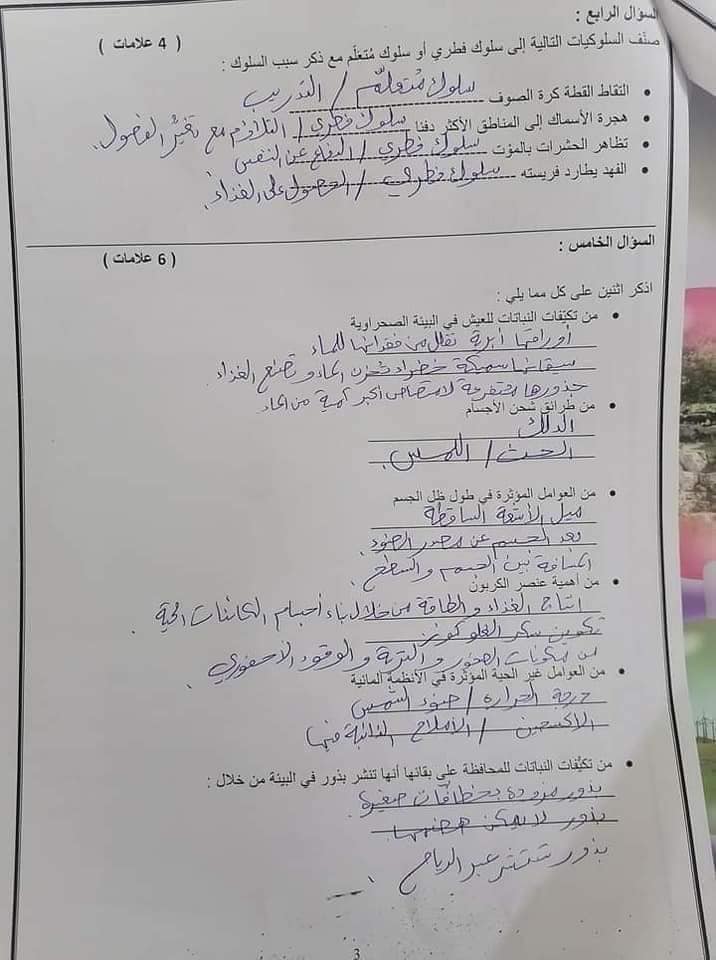 السؤال الرابع :
صنّف السلوكيات التالية إلى سلوك فطري أو سلوك مُتعلّم مع ذكر سبب السلوك : ( 4 علامات )
• التقاط القطة كرة الصوف سلوك مُتعلّم / التدريب
• هجرة الأسماك إلى المناطق الأكثر دفئا سلوك فطري / التلاؤم مع تغيّر الفصول.
• تظاهر الحشرات بالموت سلوك فطري / الدفاع عن النفس
• الفهد يطارد فريسته سلوك فطري / الحصول على الغذاء.
السؤال الخامس :
( 6 علامات )
اذكر اثنين على كل مما يلي :
• من تكيّفات النباتات للعيش في البيئة الصحراوية
أوراقها أبرية تقلل من فقدانها للماء
سيقانها سميكة خضراء تخزن الماء و تصنع الغذاء.
جذورها متفرعة لامتصاص أكبر كمية من الماء
• من طرائق شحن الأجسام
الدلك
الحث / اللمس.
• من العوامل المؤثرة في طول ظل الجسم
ميل الأشعة الساقطة
بعد الجسم عن مصدر الضوء.
المسافة بين الجسم والسطح.
• من أهمية عنصر الكربون
انتاج الغذاء و الطاقة من خلال بناء أجسام الكائنات الحية.
تكوين سكر الغلوكوز
من مكونات الصخور و التربة و الوقود الأحفوري.
• من العوامل غير الحية المؤثرة في الأنظمة المائية
درجة الحرارة / ضوء الشمس
الأكسجين / الأملاح الذائبة فيها
• من تكيّفات النباتات للمحافظة على بقائها أنها تنشر بذور في البيئة من خلال :
بذور مزودة بخطافات صغيرة
بذور لا يمكن هضمها.
بذور تنتشر عبر الرياح.
3